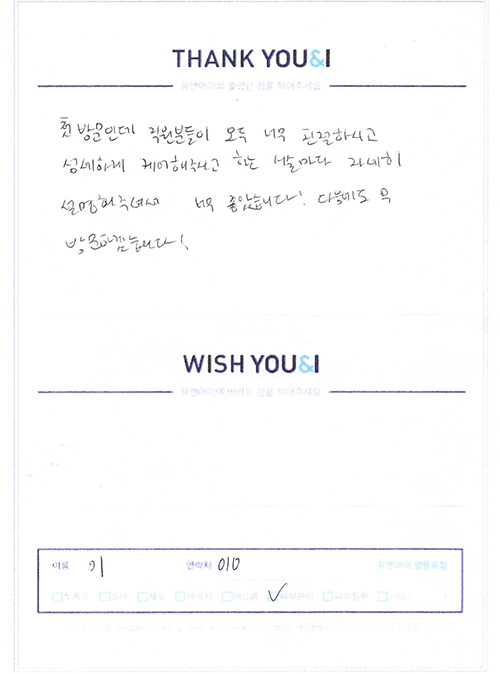 THANK YOU&I
유앤아이의 좋았던 점을 적어주세요
첫 방문인데 직원분들이 모두 너무 친절하시고
섬세하게 케어해주시고 하는 시술마다 자세히
설명해주셔서 너무 좋았습니다! 다음에도 또
방문하겠습니다!
WISH YOU&I
유앤아이에 바라는 점을 적어주세요
이름 이 연락처 010 유앤아이 영등포점
보톡스 필러 제모 레이저 여드름 피부관리 피부질환 기타(